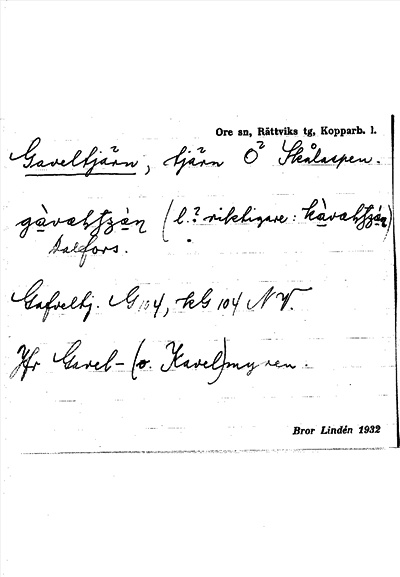 Ore sn, Rättviks tg, Kopparb. l.
Gaveltjärn, tjärn O Skålaspen.
(l.? riktigare:
Dalfors.
Gafveltj. G 104, kG 104 NV.
Jfr Gavel- (o. Kavel)myren.
Bror Lindén 1932